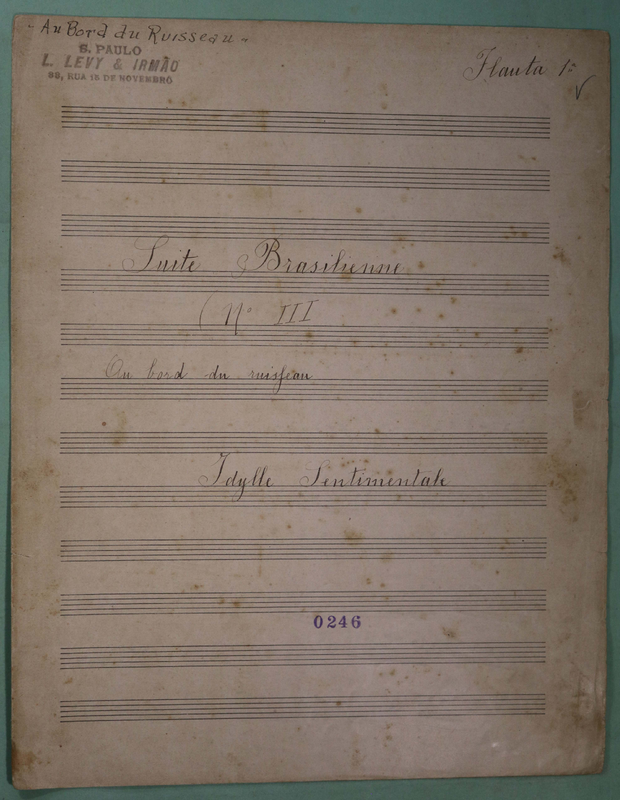 - Au Bord du Ruisseau -
S. PAULO
L. LEVY & IRMÃO
Flauta 1ª
RUA 15 DE NOVEMBRO
Suite Brasilienne
( Nº III
Au bord du ruisseau
Idylle Sentimentale
0246